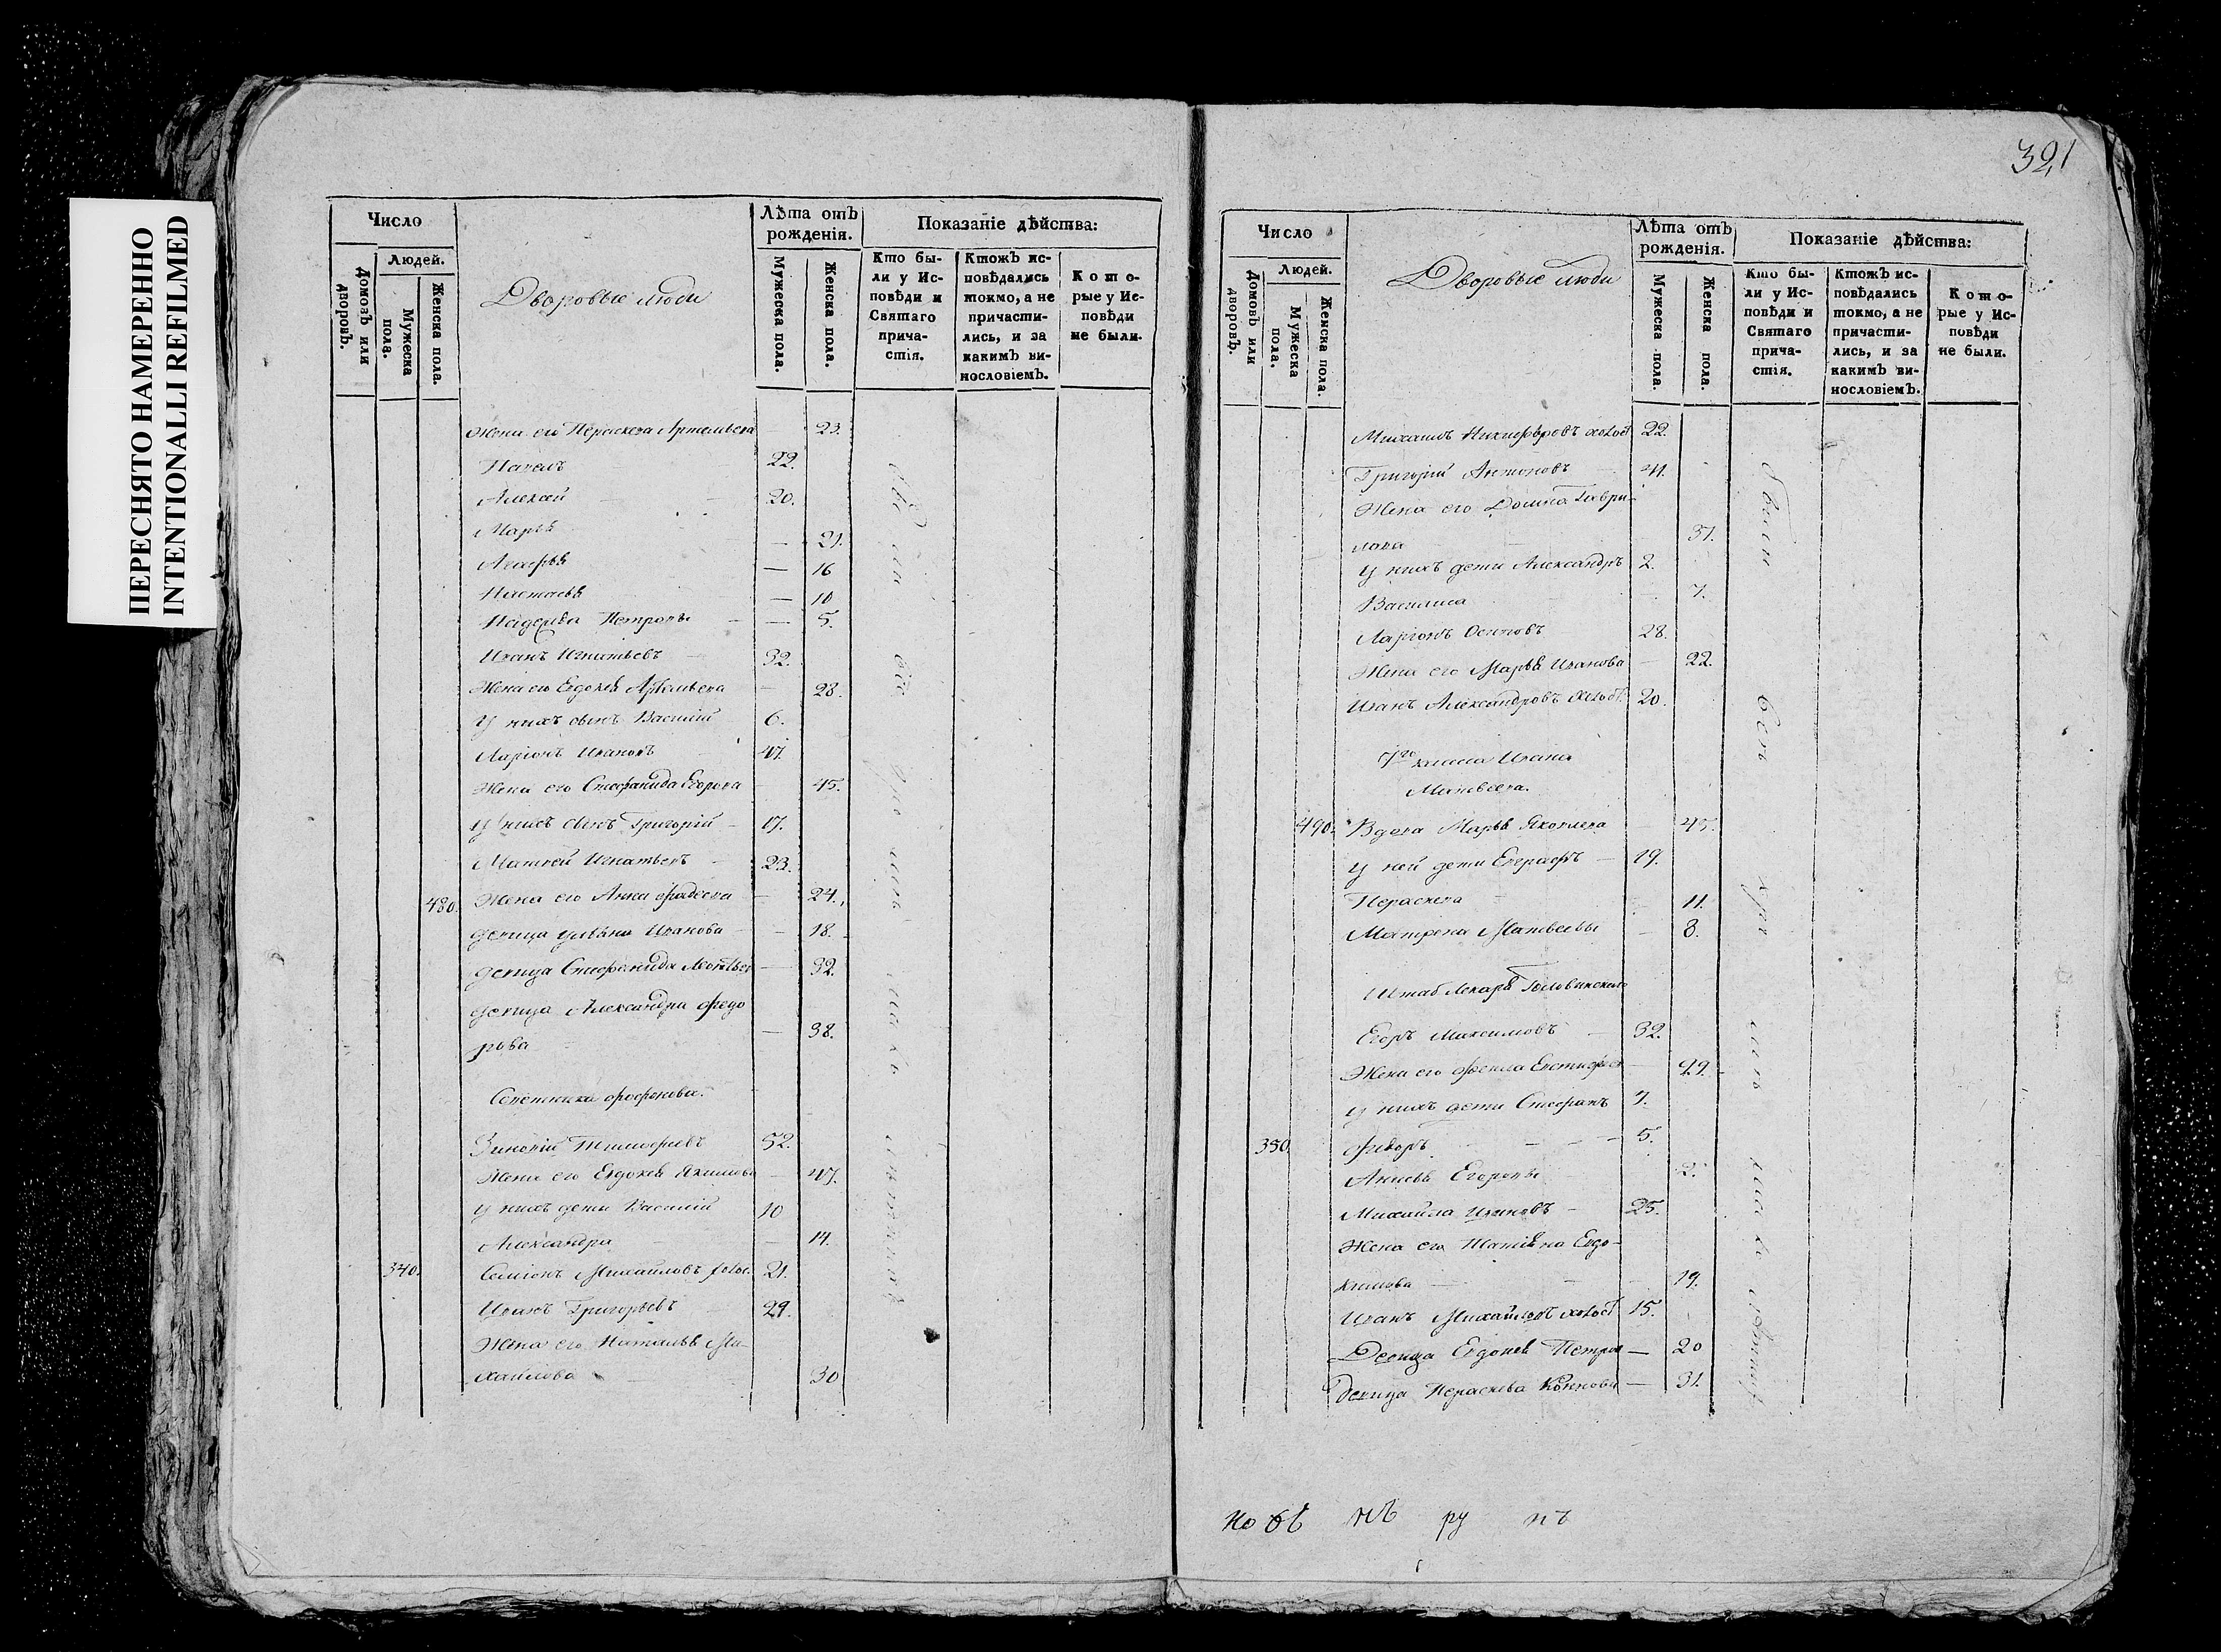 ПЕРЕСНЯТО НАМЕРЕННО
INTENTIONALLI REFILMED
Число
Людей.
Домовъ или дворовъ.
Мужеска пола.
Женска пола.
Дворовые люди
Лѣта отъ рожденія.
Мужеска пола.
Женска пола.
Показаніе дѣйства:
Кто бы-
ли у Ис-
повѣди и
Святаго
прича-
стія.
Ктожъ ис-
повѣдались
токмо, а не
причасти-
лись, и за
какимъ ви-
нословіемъ.
Кото-
рые у Ис-
повѣди
не были.
Жена его Параскева 23.
Павелъ 22.
Алексѣй 20.
Марья — 21.
Агафья — 16
Настасья — 10
Надежда Петровы — 5.
Иванъ Игнатьевъ 32.
Жена его Евдокея 28.
У нихъ сынъ Василій 6.
Ларіонъ Ивановъ 47.
Жена его Стефанида Егорова 45.
У нихъ сынъ Григорій 17.
Матвей Игнатьевъ 23.
480. Жена его Анна Фадеева 24.
Девица Ульяна Иванова 18.
Девица Стефанида Леонтьев 32.
Девица Александра Федо
рова 38.
Зиновій Тимофеевъ 52.
Жена его Евдокея Якимова 47.
У нихъ дети Василій 10
Александра 14.
340. Семіонъ Михайловъ холос. 21.
Иванъ Григорьевъ 29.
Жена его Наталья Ми-
хайлова 30
321
Число
Людей.
Домовъ или дворовъ.
Мужеска пола.
Женска пола.
Дворовые люди
Лѣта отъ рожденія.
Мужеска пола.
Женска пола.
Показаніе дѣйства:
Кто бы-
ли у Ис-
повѣди и
Святаго
прича-
стія.
Ктожъ ис-
повѣдались
токмо, а не
причасти-
лись, и за
какимъ ви-
нословіемъ.
Кото-
рые у Ис-
повѣди
не были.
Михаилъ Никифоровъ холост 22.
Григорій Антоновъ 41.
Жена его Домна Гаври-
лова 37.
У нихъ дети Александръ 2.
Василиса 7.
Ларіонъ Осиповъ 28.
Жена его Марья Иванова 22.
Иванъ Александровъ холост. 20.
7го класса Ивана
Матвеева.
490. Вдова Марья Яковлева 45.
У ней дети Евграфъ 19.
Параскева 11.
Матрена Матвеевы 8.
Штаб Лекаря Головинскаго
Егоръ Максимовъ 32.
Жена его Фекла 29.
У нихъ дети Стефанъ 7.
350 Фѣдоръ 5.
Анисья Егоровы 2.
Михайла Ивановъ 25.
Жена его Татіяна Евдо-
кимова 19.
Иванъ Михайловъ холост 15.
Девица Евдокея Петрова — 20
Девица Параскева — 31.
но бѣ нѣ ру нъ